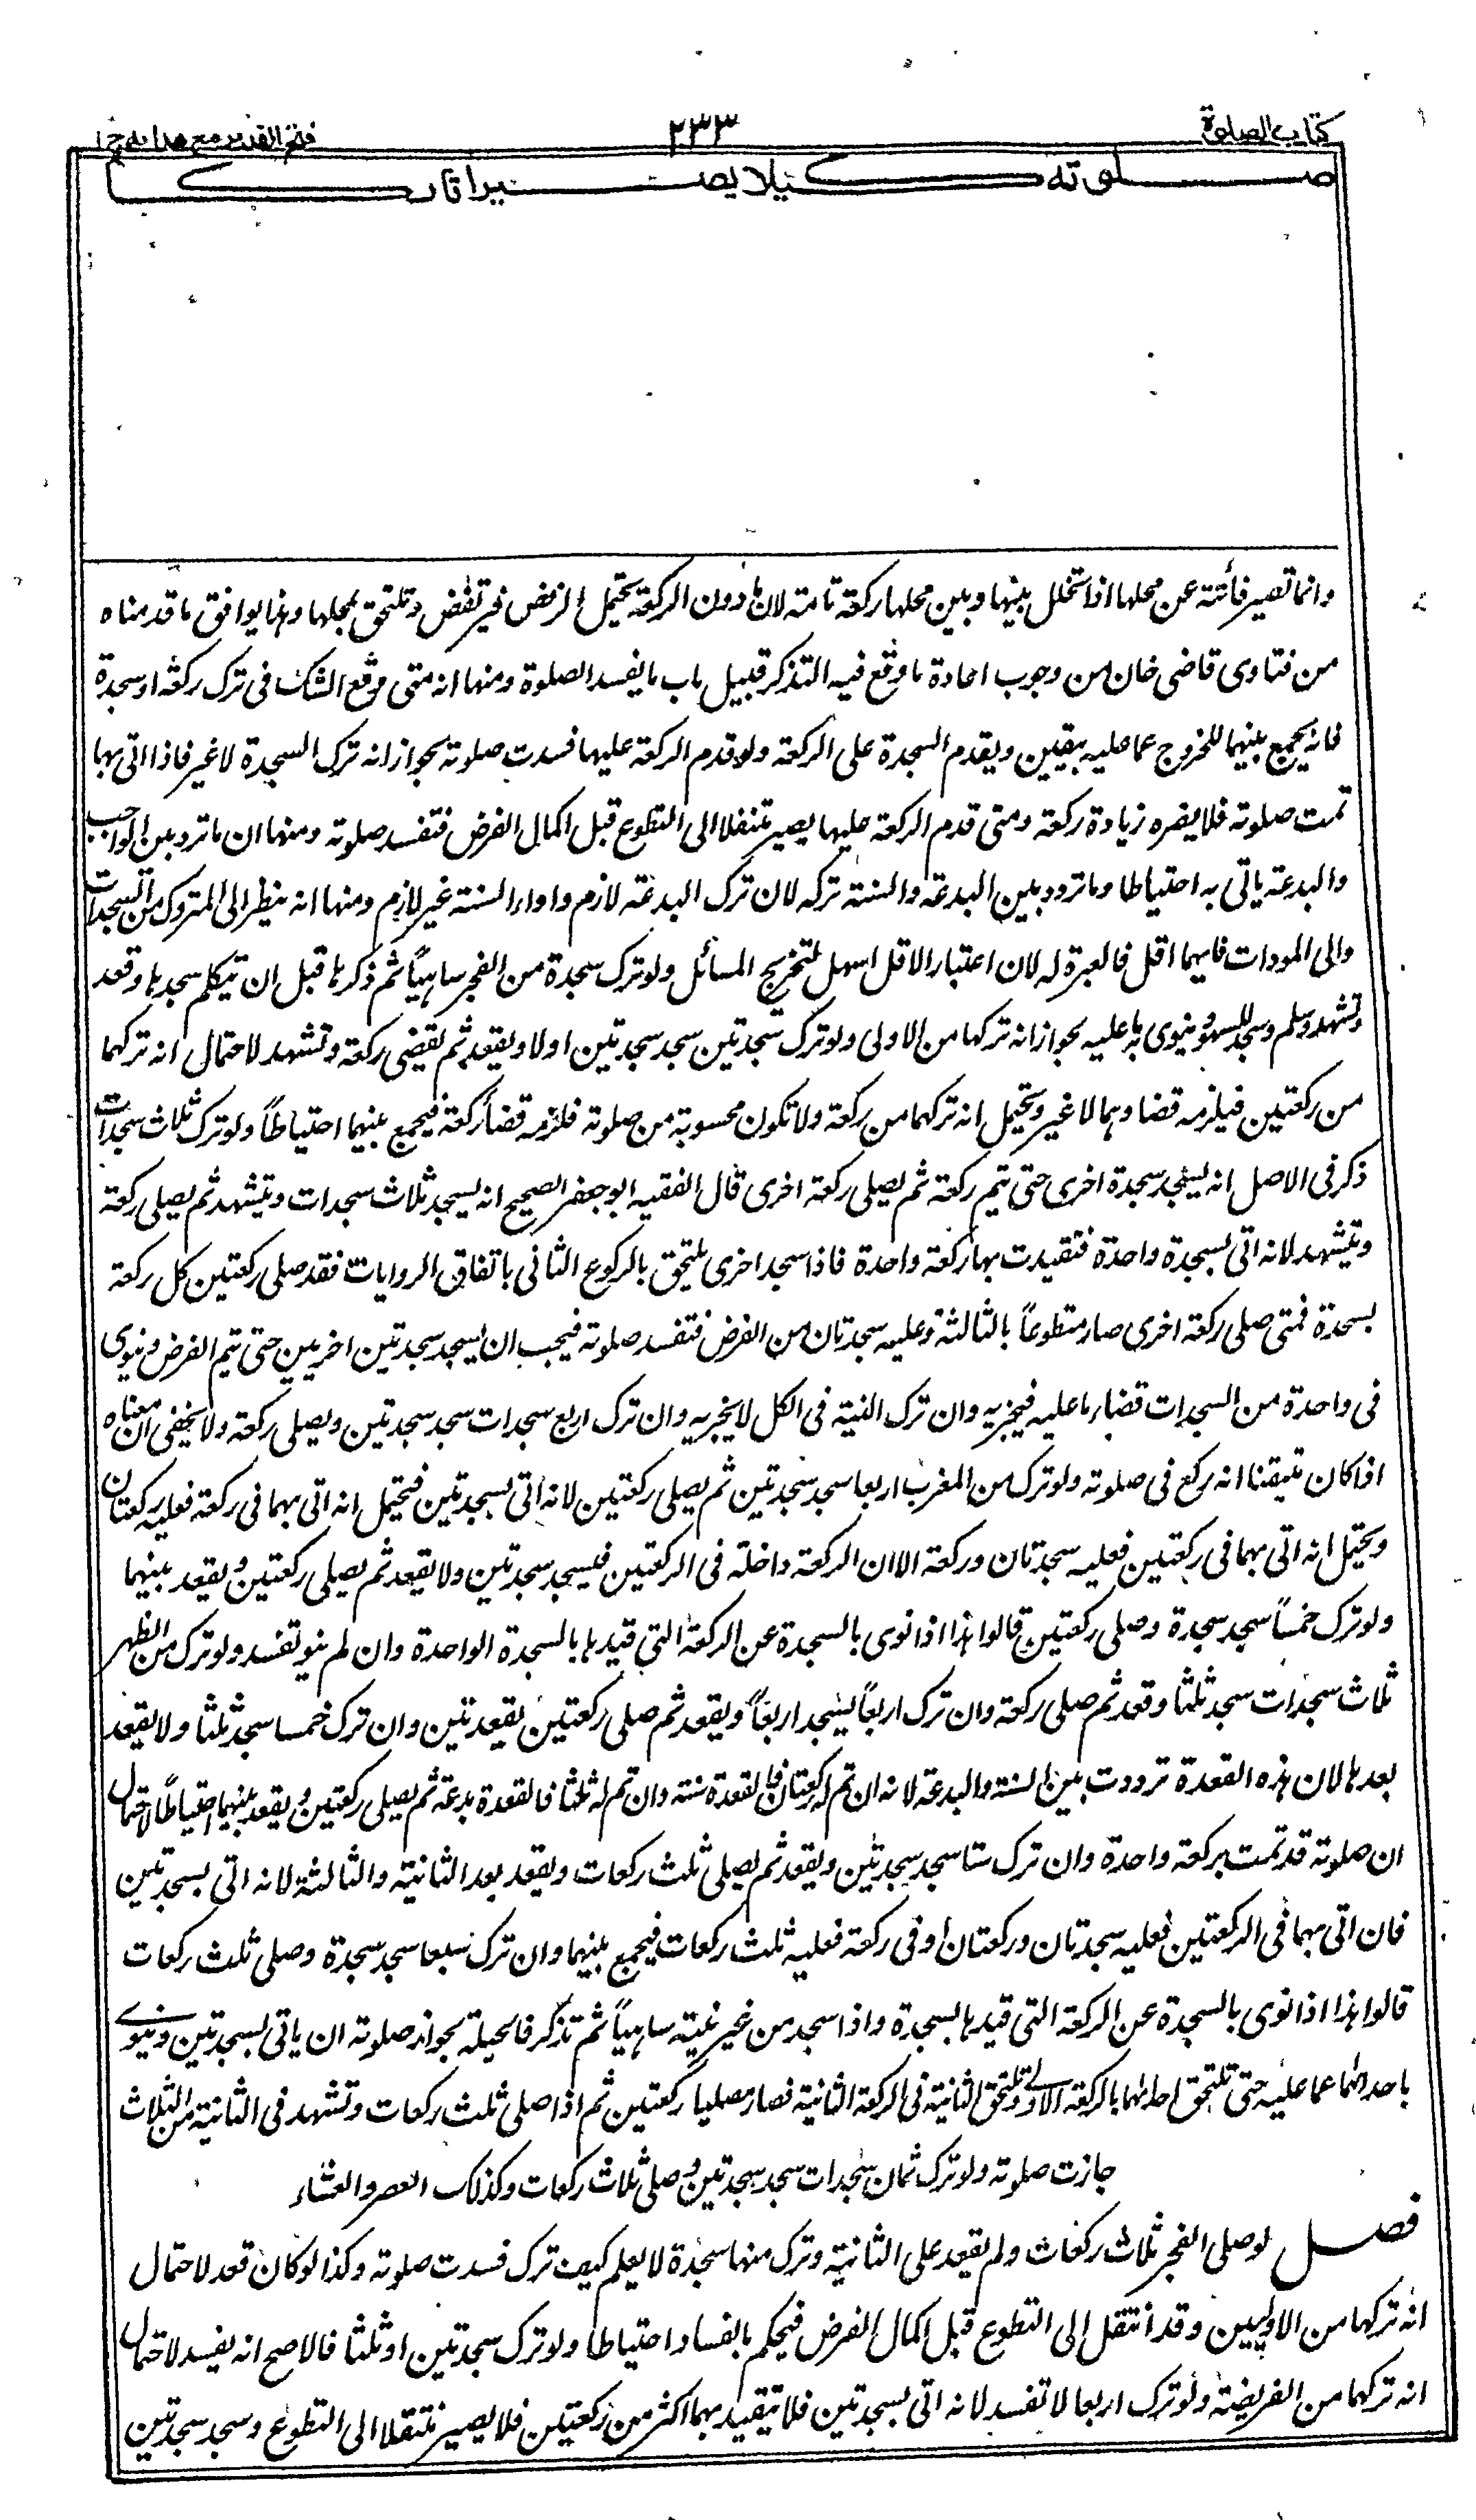 كتاب الصلوة
٢٣٣
فتح القدير مع هدايه ج ١
صلوته كيلا يصير تاركا
وانما تصير فائتة عن محلها اذا تخلل بينها وبين محلها ركعة تامة لان ما دون الركعة يحتمل الرفض فيرتفض وتلتحق بمحلها وهذا يوافق ما قدمناه
من فتاوى قاضى خان من وجوب اعادة ما وقع فيه التذكر قبيل باب ما يفسد الصلوة ومنها انه متى وقع الشك فى ترك ركعة او سجدة
فانه يجمع بينهما للخروج عما عليه بيقين ويقدم السجدة على الركعة ولو قدم الركعة عليها فسدت صلوته بجواز انه ترك السجدة لا غير فاذا اتى بها
تمت صلوته فلا يضره زيادة ركعة ومتى قدم الركعة عليها يصير متنفلا الى التطوع قبل اكمال الفرض فتفسد صلوته ومنها ان ما تردد بين الواجب
والبدعة ياتى به احتياطا وما تردد بين البدعة والسنة تركه لان ترك البدعة لازم واداء السنة غير لازم ومنها انه ينظر الى المتروك من السجدات
والى المودات فايهما اقل فالعبرة له لان اعتبار الاقل اسهل لتخريج المسائل ولو ترك سجدة من الفجر ساهياً ثم ذكرها قبل ان يتكلم سجدها وقعد
وتشهد وسلم وسجد للسهو وينوى بها عليه بجواز انه تركها من الاولى ولو ترك سجدتين سجد سجدتين اولا ويقعد ثم يقضى ركعة وتشهد لاحتمال انه تركهما
من ركعتين فيلزمه قضاوهما لا غير ويحتمل انه تركهما من ركعة ولا تكون محسوبة من صلوته فلزمه قضأ ركعة فيجمع بينهما احتياطاً ولو ترك ثلاث سجدات
ذكر فى الاصل انه يسجد سجدة اخرى حتى يتم ركعة ثم يصلى ركعة اخرى قال الفقيه ابو جعفر الصحيح انه يسجد ثلاث سجدات ويتشهد ثم يصلى ركعة
ويتشهد لانه اتى بسجدة واحدة فتقيدت بها ركعة واحدة فاذا سجد اخرى يلتحق بالركوع الثانى باتفاق الروايات فقد صلى ركعتين كل ركعة
بسجدة فمتى صلى ركعة اخرى صار متطوعاً بالثالثة وعليه سجدتان من الفرض فتفسد صلوته فيجب ان يسجد سجدتين اخريين حتى يتم الفرض وينوى
فى واحدة من السجدات قضاء ما عليه فيجزيه وان ترك النية فى الكل لا يجزيه وان ترك اربع سجدات سجد سجدتين ويصلى ركعة ولا يخفى ان معناه
اذا كان تيقنا انه ركع فى صلوته ولو ترك من المغرب اربعا سجد سجدتين ثم يصلى ركعتين لانه اتى بسجدتين فيحتمل انه اتى بهما فى ركعة فعليه ركعتان
ويحتمل انه اتى بهما فى ركعتين فعليه سجدتان وركعة الا ان الركعة داخلة فى الركعتين فيسجد سجدتين ولا يقعد ثم يصلى ركعتين ويقعد بينهما
ولو ترك خمساً سجد سجدة وصلى ركعتين قالوا هذا اذا نوى بالسجدة عن الركعة التى قيدها بالسجدة الواحدة وان لم ينو تفسد ولو ترك من الظهر
ثلاث سجدات سجد ثلثا وقعد ثم صلى ركعة وان ترك اربعاً يسجد اربعاً ويقعد ثم صلى ركعتين بقعدتين وان ترك خمسا سجد ثلثا ولا يقعد
بعدها لان هذه القعدة ترددت بين السنة والبدعة لانه ان تم له ركعتان فالقعدة سنة وان تم له ثلثا فالقعدة بدعة ثم يصلى ركعتين ويقعد بينهما احتياطاً لاحتمال
ان صلوته قد تمت بركعة واحدة وان ترك ستا سجد سجدتين ويقعد ثم يصلى ثلث ركعات ويقعد بعد الثانية والثالثة لانه اتى بسجدتين
فان اتى بهما فى الركعتين فعليه سجدتان وركعتان او فى ركعة فعليه ثلث ركعات فيجمع بينهما وان ترك سبعا سجد سجدة وصلى ثلث ركعات
قالوا هذا اذا نوى بالسجدة عن الركعة التى قيدها بالسجدة واذا سجد من غير نية ساهياً ثم تذكر فالحيلة بجواز صلوته ان ياتى بسجدتين وينوى
باحداهما عما عليه حتى تلتحق احداهما بالركعة الاولى وتلتحق الثانية فى الركعة الثانية فصار مصليا ركعتين ثم اذا صلى ثلث ركعات وتشهد فى الثانية من الثلاث
جازت صلوته ولو ترك ثمان سجدات سجد سجدتين وصلى ثلاث ركعات وكذلك العصر والعشاء
فصل لو صلى الفجر ثلاث ركعات ولم يقعد على الثانية وترك منها سجدة لا يعلم كيف ترك فسدت صلوته وكذا لو كان قعد لاحتمال
انه تركها من الاوليين وقد انتقل الى التطوع قبل اكمال الفرض فيحكم بالفساد احتياطا ولو ترك سجدتين او ثلثا فالاصح انه يفسد لاحتمال
انه تركهما من الفريضة ولو ترك اربعا لا تفسد لانه اتى بسجدتين فلا يتقيد بهما اكثر من ركعتين فلا يصير منتقلا الى التطوع وسجد سجدتين